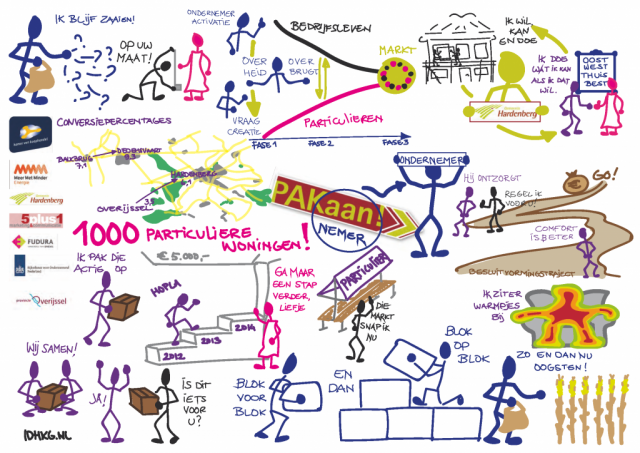 IK BLIJF ZAAIEN!
OP UW
MAAT!
ONDERNEMER
ACTIVATIE
OVER
HEID
OVER
BRUGT
VRAAG
CREATIE
BEDRIJFSLEVEN
MARKT
PARTICULIEREN
FASE 1
FASE 2
FASE 3
IK WIL
KAN
EN DOE
Hardenberg
IK DOE
WAT IK KAN
ALS IK DAT
WIL.
OOST
WEST
THUIS
BEST
CONVERSIEPERCENTAGES
BALKBRUG
7.1
DEDEMSVAART
9.3
HARDENBERG
OVERIJSSEL
3.9
Meer Met Minder
Energie
Hardenberg
5plus1
FUDURA
provincie Overijssel
PAKaan!
NEMER
ONDERNEMER
HIJ ONTZORGT
REGEL IK
VOOR U!
GO!
COMFORT
IS BETER
BESLUITVORMINGSTRAJECT
1000 PARTICULIERE
WONINGEN!
€ 5.000,-
IK PAK DIE
ACTIE OP
HOPLA
2012
2013
2014
GA MAAR
EEN STAP
VERDER,
LIEFJE
PARTICULIER
DIE
MARKT
SNAP IK
NU
IK ZIT ER
WARMPJES
BIJ
WIJ SAMEN!
JA!
IS DIT
IETS
VOOR
U?
BLOK
VOOR
BLOK
EN
DAN
BLOK
OP
BLOK
ZO EN DAN NU
OOGSTEN!
IDHKG.NL